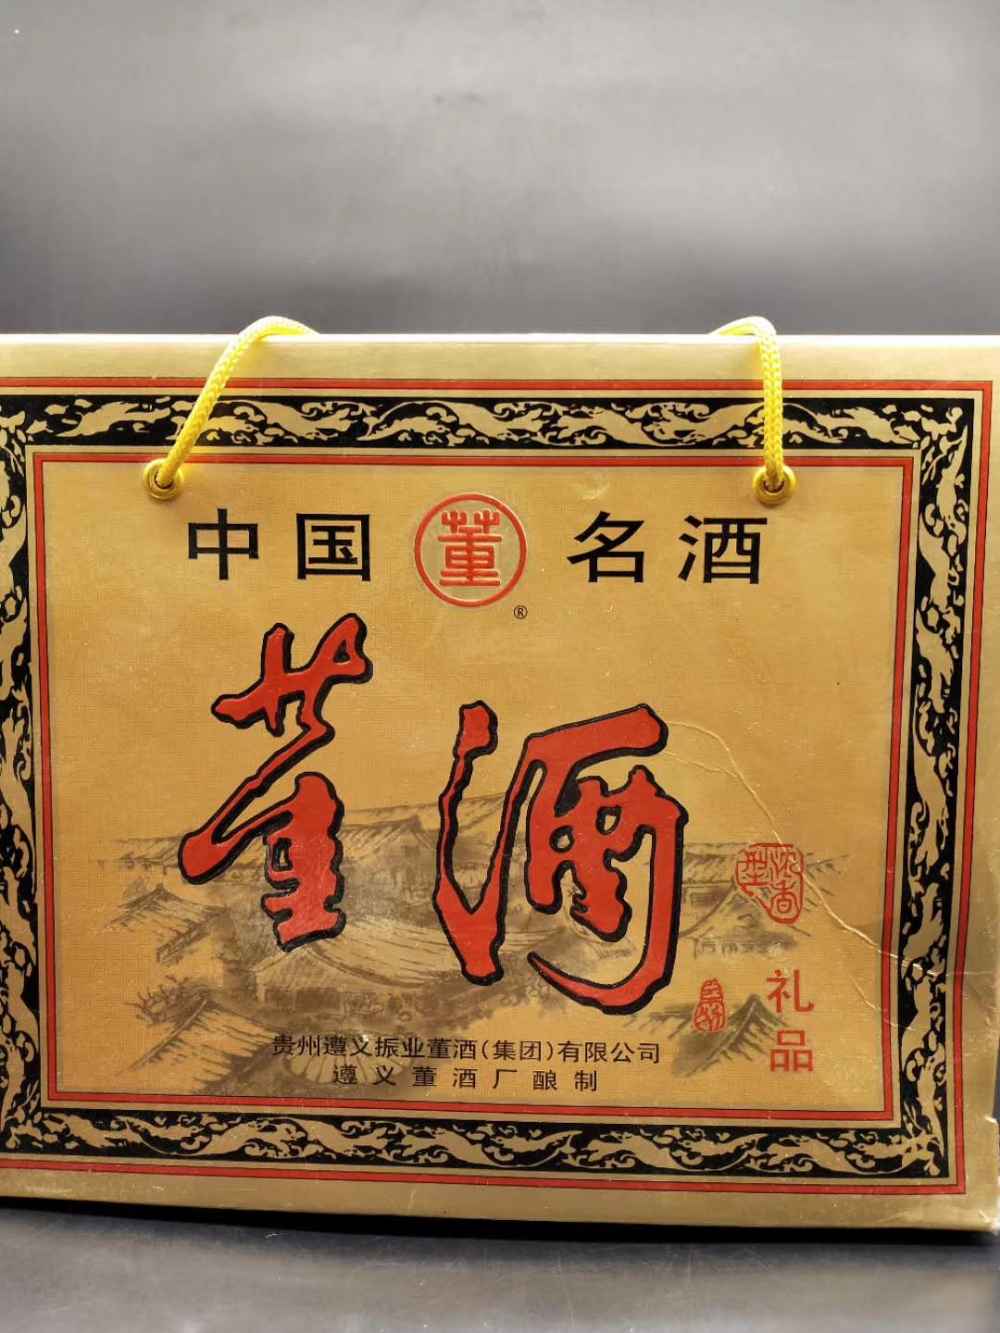 中国 董 名酒
®
董酒
浓香型
礼品
贵州遵义振业董酒(集团)有限公司
遵义董酒厂酿制